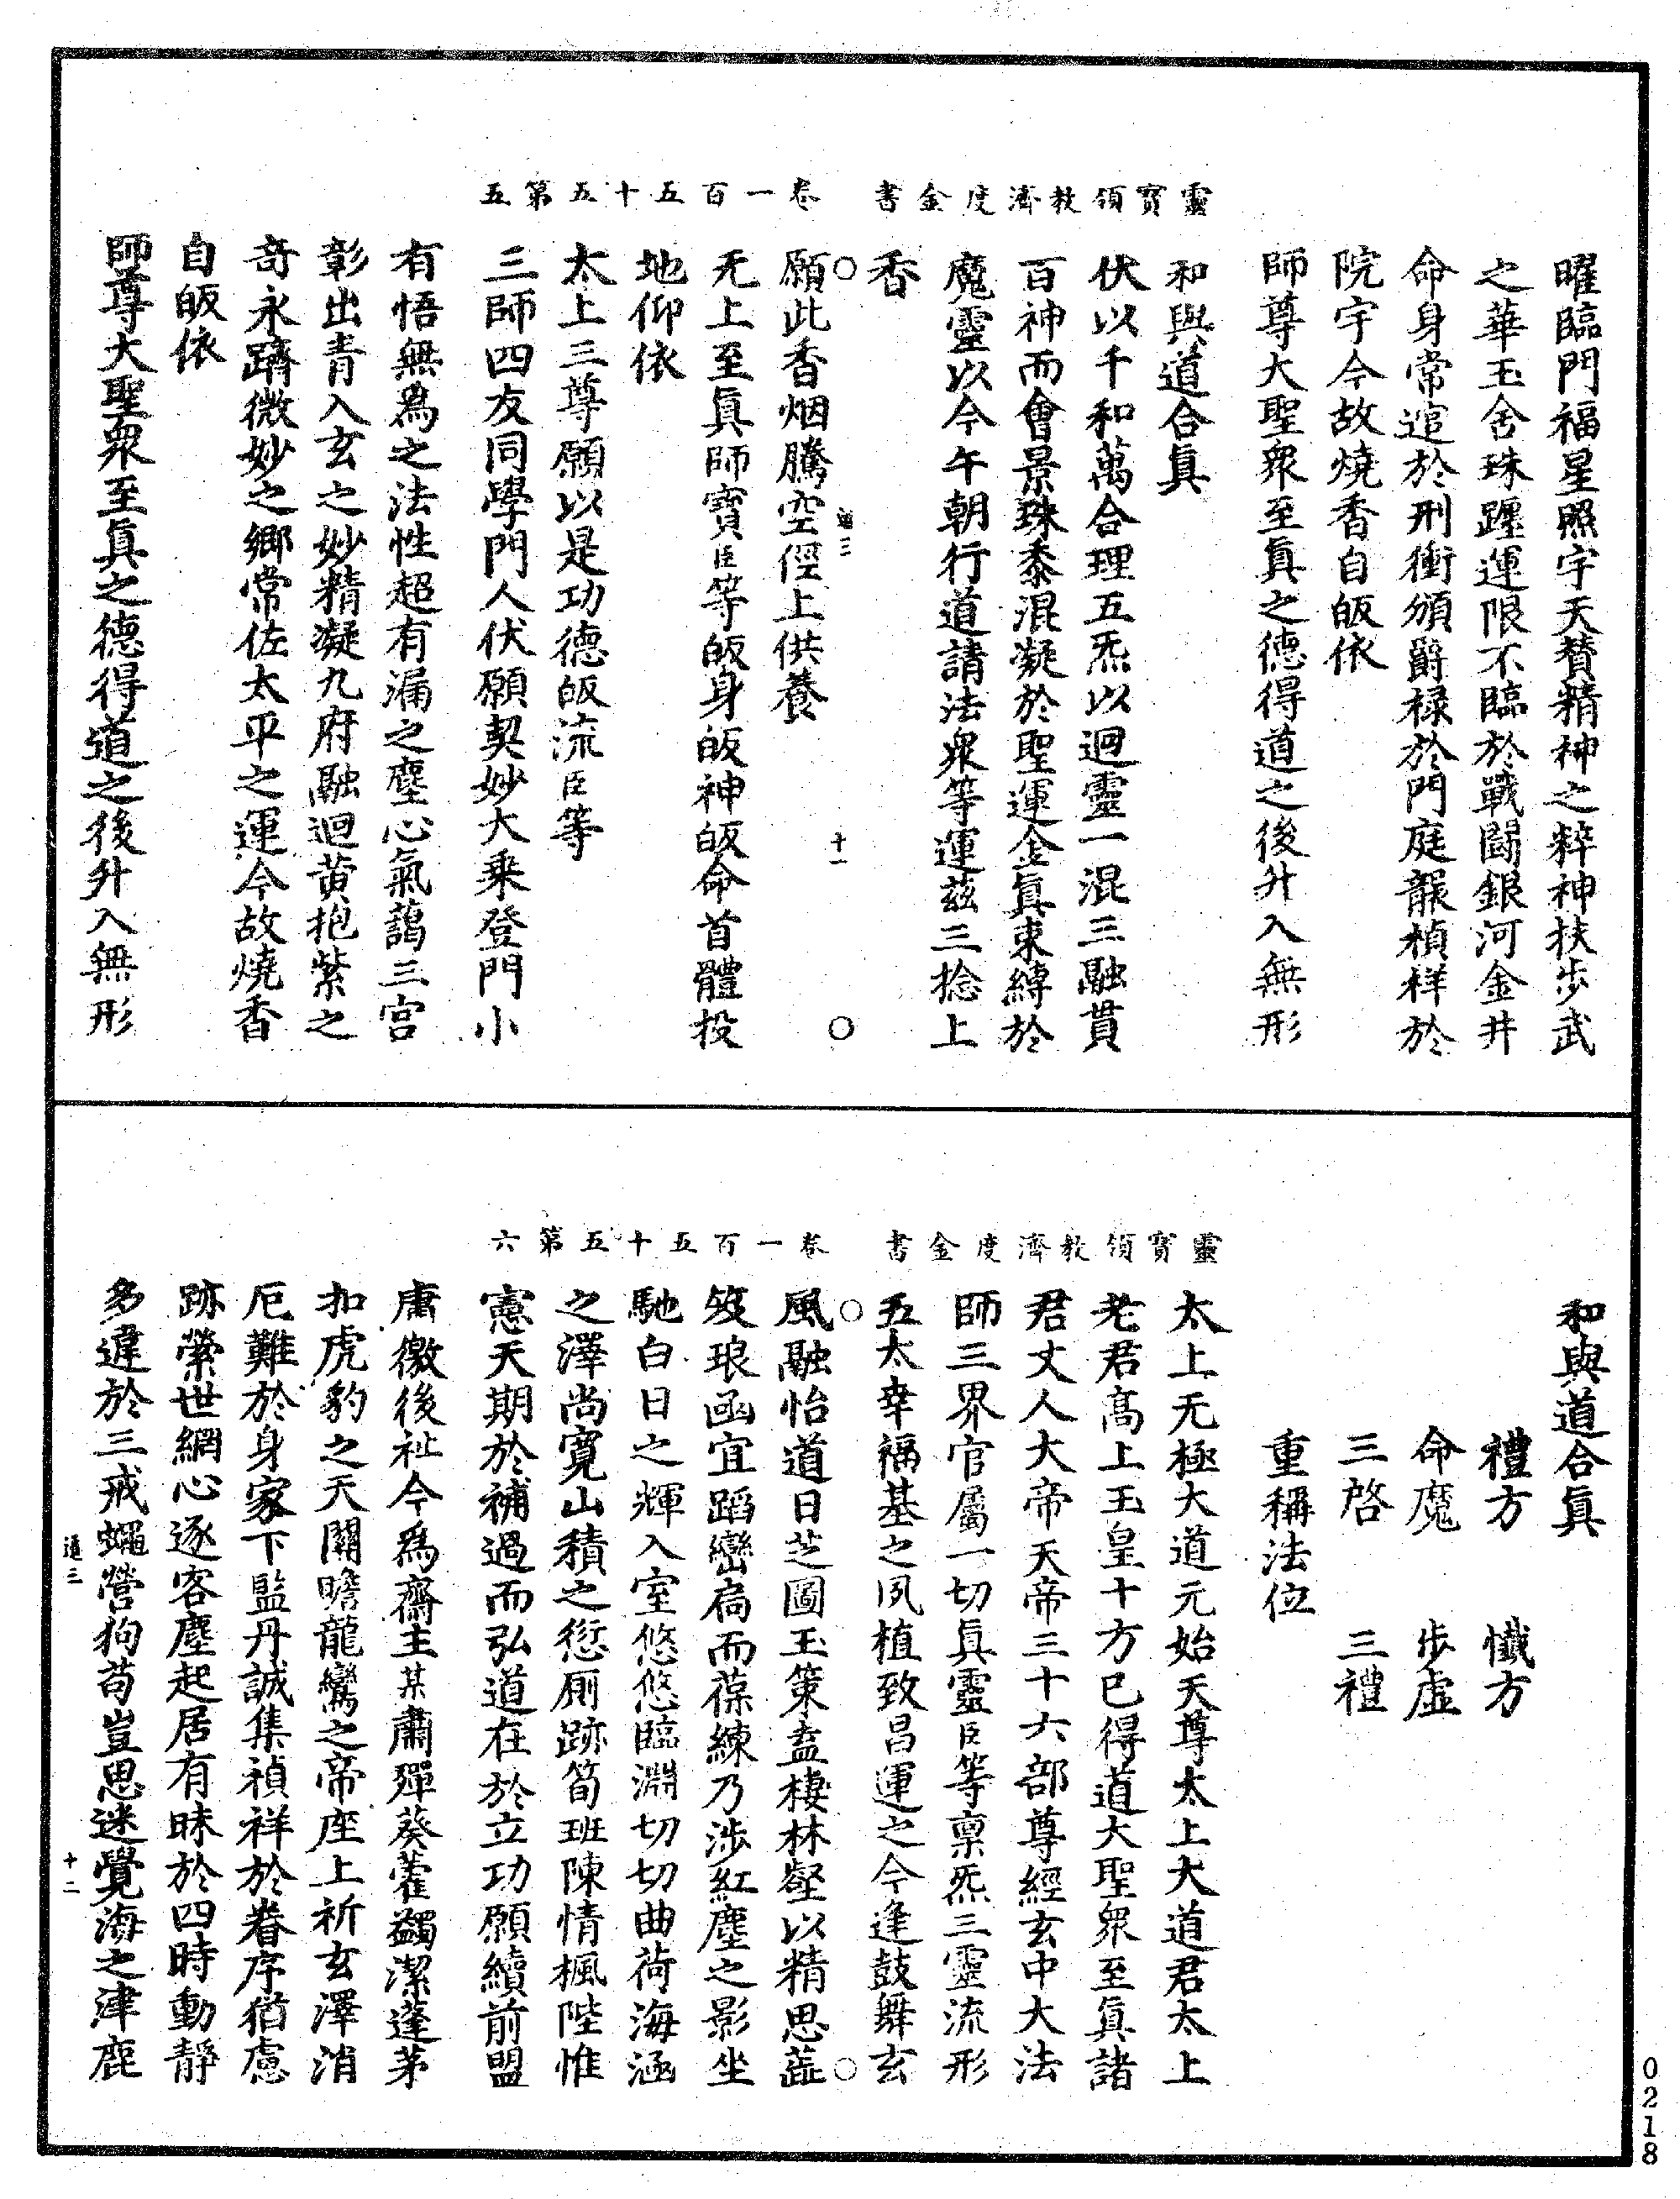 曜臨門福星照宇天賛精神之粹神扶步武
之華玉舍珠躔運限不臨於戰鬭銀河金井
命身常逭於刑衝頒爵禄於門庭龍楨祥於
院宇今故燒香自皈依
師尊大聖衆至眞之德得道之後升入無形
和與道合眞
靈寶領教濟度金書
伏以千和萬合理五炁以迴靈一混三融貫
百神而會景珠黍混凝於聖運金眞束縛於
魔靈以今午朝行道請法衆等運茲三捻上
香
通三
十一
願此香烟騰空徑上供養
无上至眞師寶臣等皈身皈神皈命首體投
地仰依
太上三尊願以是功德皈流臣等
卷一百五十五第五
三師四友同學門人伏願契妙大乘登門小
有悟無爲之法性超有漏之塵心氣藹三宮
彰出青入玄之妙精凝九府融迴黄抱紫之
奇永躋微妙之鄉常佐太平之運今故燒香
自皈依
師尊大聖衆至眞之德得道之後升入無形
和與道合眞
禮方 懺方
命魔 步虛
三啓 三禮
重稱法位
靈寶領教濟度金書
太上无極大道元始天尊太上大道君太上
老君高上玉皇十方已得道大聖衆至眞諸
君丈人大帝天帝三十六部尊經玄中大法
師三界官屬一切眞靈臣等禀炁三靈流形
五太幸福基之夙植致昌運之今逢鼓舞玄
風融怡道日芝圖玉策盍棲林壑以精思蘂
笈琅函宜蹈巒扃而葆練乃涉紅塵之影坐
馳白日之輝入室悠悠臨淵切切曲荷海涵
之澤尚寬山積之愆厠跡筍班陳情楓陛惟
卷一百五十五第六
憲天期於補過而弘道在於立功願續前盟
庸徼後祉今爲齋主某肅殫葵藿蠲潔蓬茅
扣虎豹之天關瞻龍鸞之帝座上祈玄澤消
厄難於身家下監丹誠集禎祥於眷序猶慮
跡縈世網心逐客塵起居有昧於四時動靜
多違於三戒蠅營狗苟豈思迷覺海之津鹿
通三
十二
0218